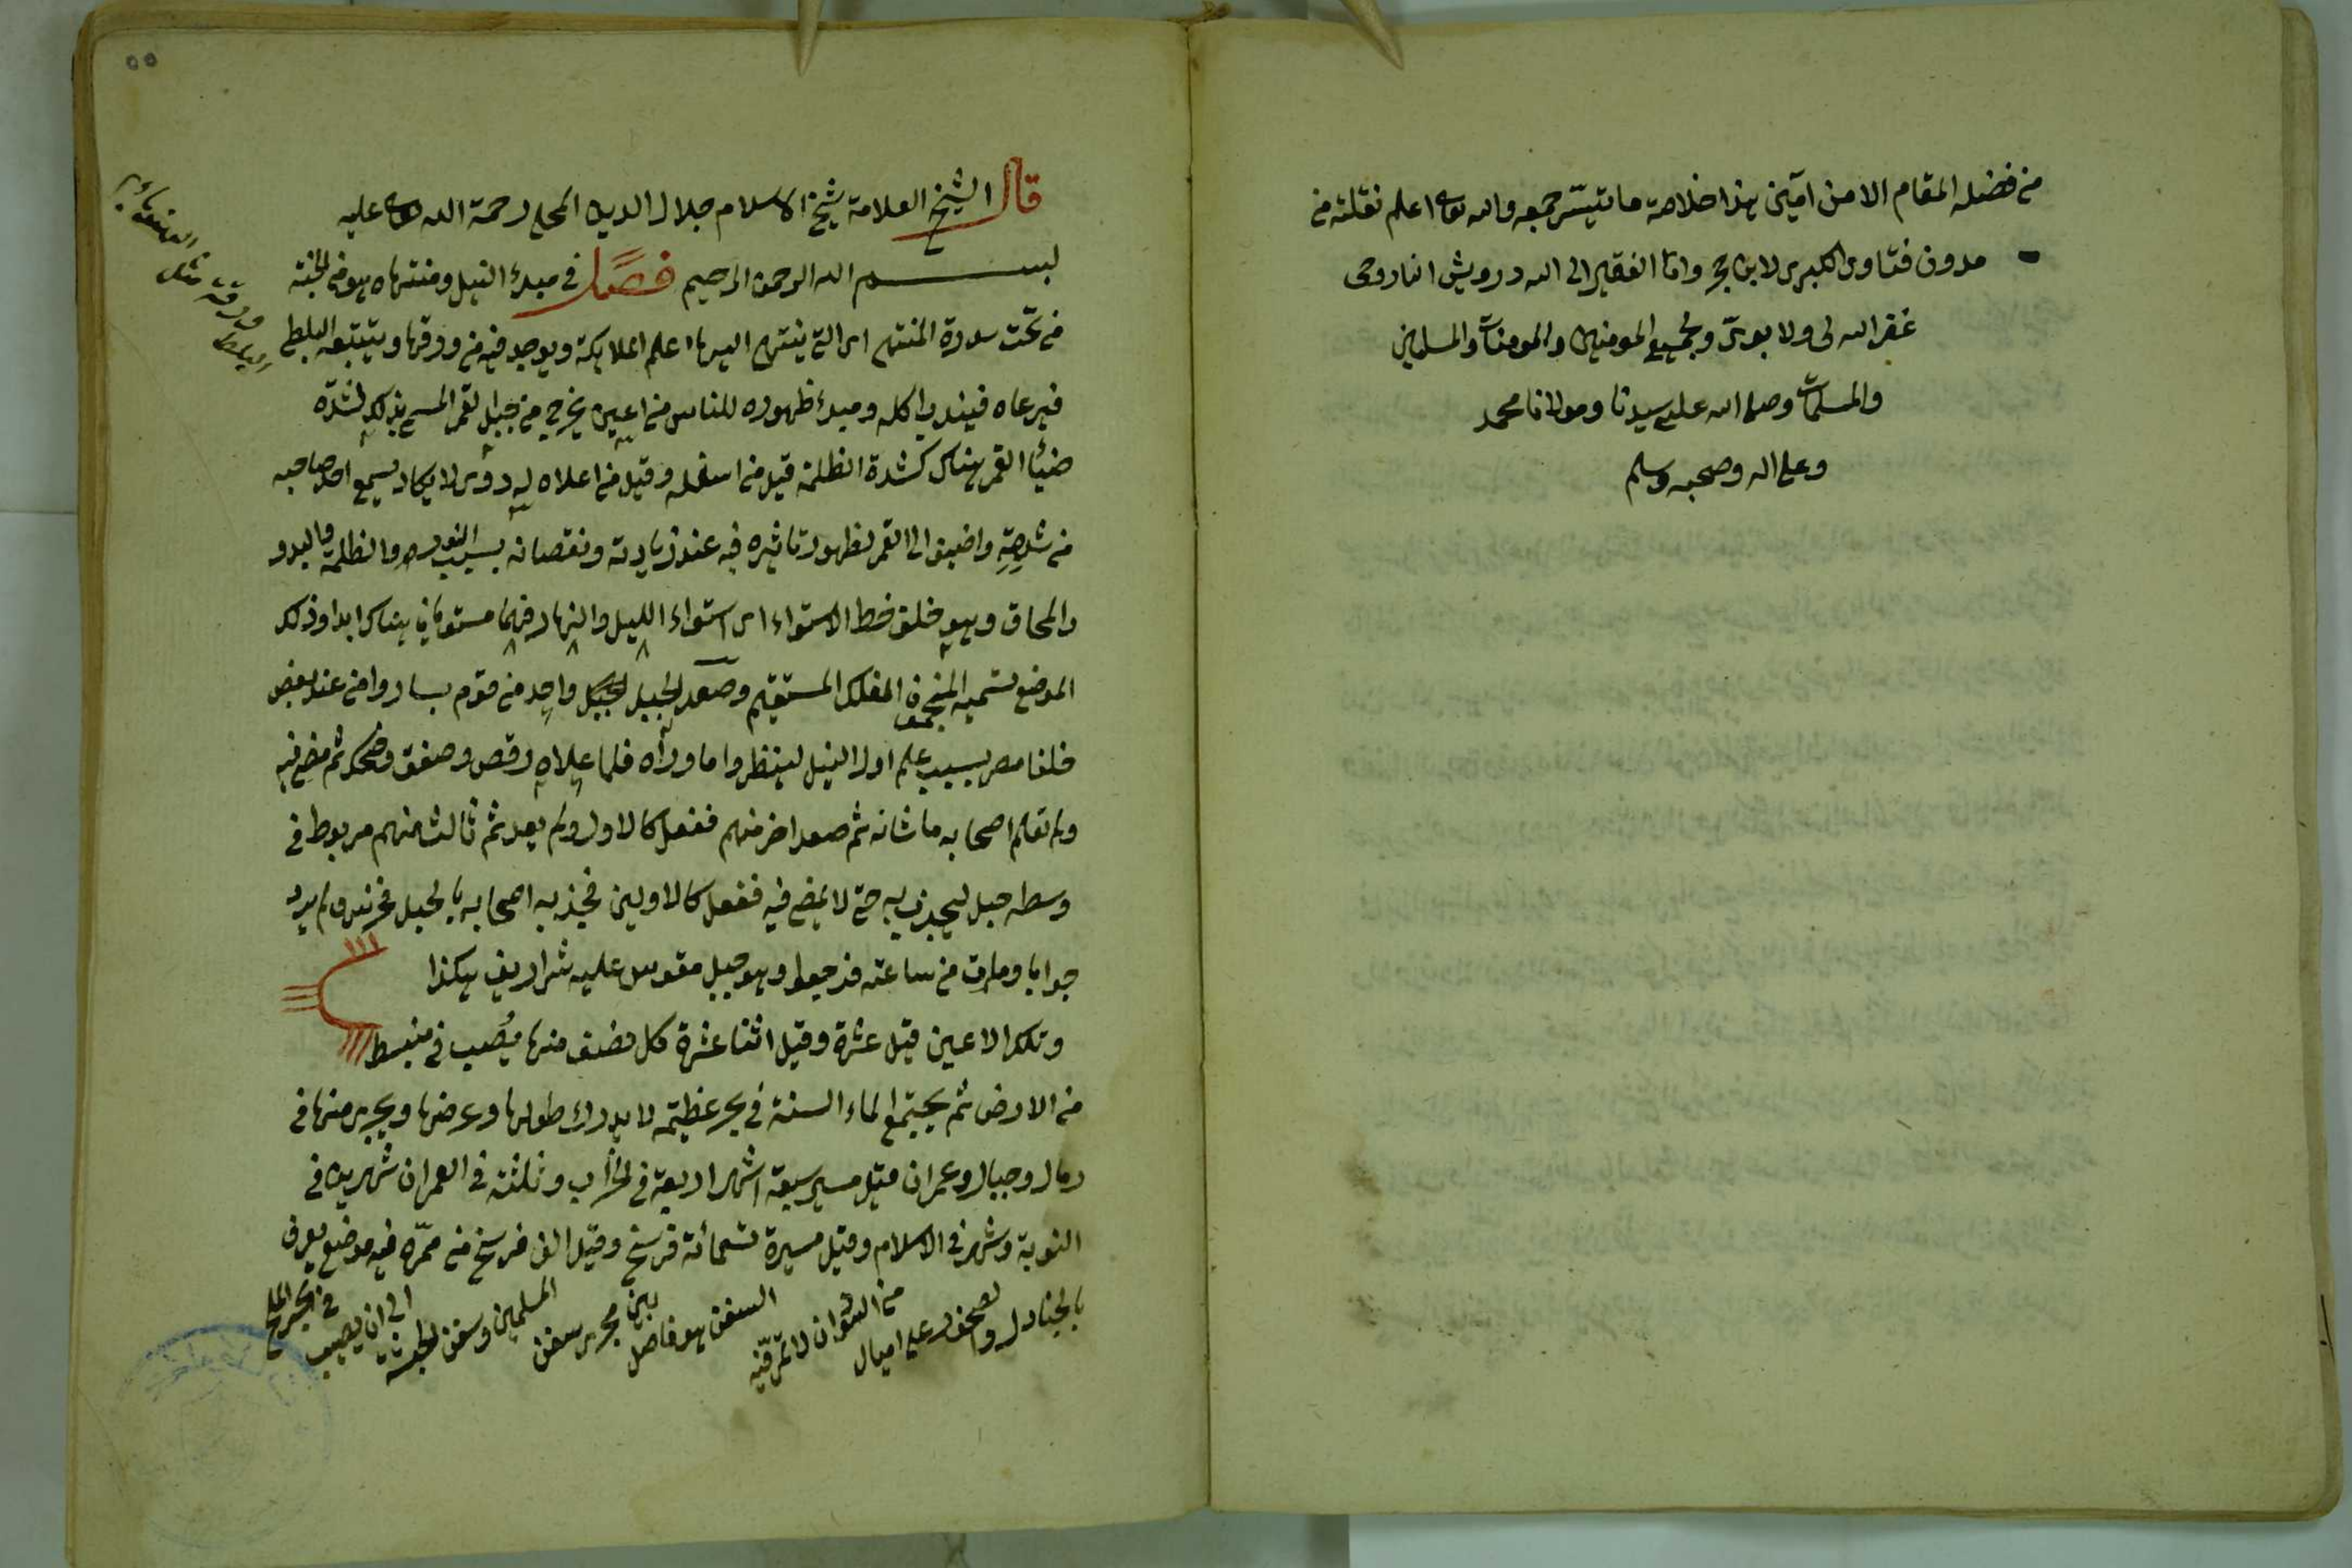 من فضله المقام الامن آمين هذا خلاصة ما تيسّر جمعه والله تعالى اعلم نقلته من
مدون فتاوى الكبرى لابن حجر وانا الفقير الى الله درويش
غفر الله لى ولابوىّ ولجميع المومنين والمومنات والمسلمين
والمسلمات وصلى الله على سيدنا ومولانا محمد
وعلى اله وصحبه وسلم
٥٥
قال الشيخ العلامة شيخ الاسلام جلال الدين المحلى رحمة الله تعالى عليه
بسم الله الرحمن الرحيم فصل فى مبدء النيل ومنتهاه هو من الجنة
من تحت سدرة المنتهى اى التى ينتهى اليها علم الملايكة ويوجد فيه من ورقها ويتتبعه البلطى
فيرعاه فيندب اكله ومبدء ظهوره للناس من اعين يخرج من جبل القمر المسمى بذلك لشدّة
ضياء القمر هناك كشدة الظلمة قيل من اسفله وقيل من اعلاه له دوى لا يكاد يسمع احد صاحبه
من شدته واضيف الى القمر لظهور تاثيره فيه عند زيادته ونقصانه بسبب النور والظلمة والبدو
والمحاق وهو خلف خط الاستواء اى استواء الليل والنهار فهما مستويان هناك ابدا وذلك
الموضع تسميه المنجمون الفلك المستقيم وصعد الجبل واحد من قوم ساروا من عند بعض
خلفا مصر بسبب علم اول النيل لينظروا ما وراه فلما علاه رقص وصفق وضحك ثم مضى فيه
ولم تعلم اصحابه ما شانه ثم صعد اخر منهم ففعل كالاول ولم يعد ثم ثالث منهم مربوط فى
وسطه حبل ليجذب به حتى لا يمضى فيه ففعل كالاولين فجذبه اصحابه بالحبل فخرس ولم يرد
جوابا ومات من ساعته فرجعوا وهو جبل مقوس عليه شراريف هكذا
وتلك الاعين قيل عشرة وقيل اثنا عشرة كل نصف منها يصب فى منبسط
من الارض ثم يجتمع الماء السنة فى بحر عظيمة لا يدرك طولها وعرضها ويجرى منها فى
رمال وجبال وعمران قيل مسير سبعة اشهر اربعة فى الخراب وثلثة فى العمران شهرين فى
النوبة وشهر فى الاسلام وقيل مسيرة تسمائة فرسخ وقيل الف فرسخ من ممرّه فيه موضع يعرف
بالجنادل والصخور على اميال من اسوان لا تمرّ فيه السفن هو فاصل بين مجرى سفن المسلمين وسفن الحبشة الى ان يصب فى البحر الملح